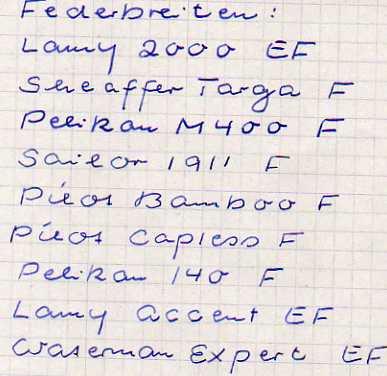 Federbreiten:
Lamy 2000 EF
Sheaffer Targa F
Pelikan M400 F
Sailor 1911 F
Pilot Bamboo F
Pilot Capless F
Pelikan 140 F
Lamy accent EF
Waterman Expert EF